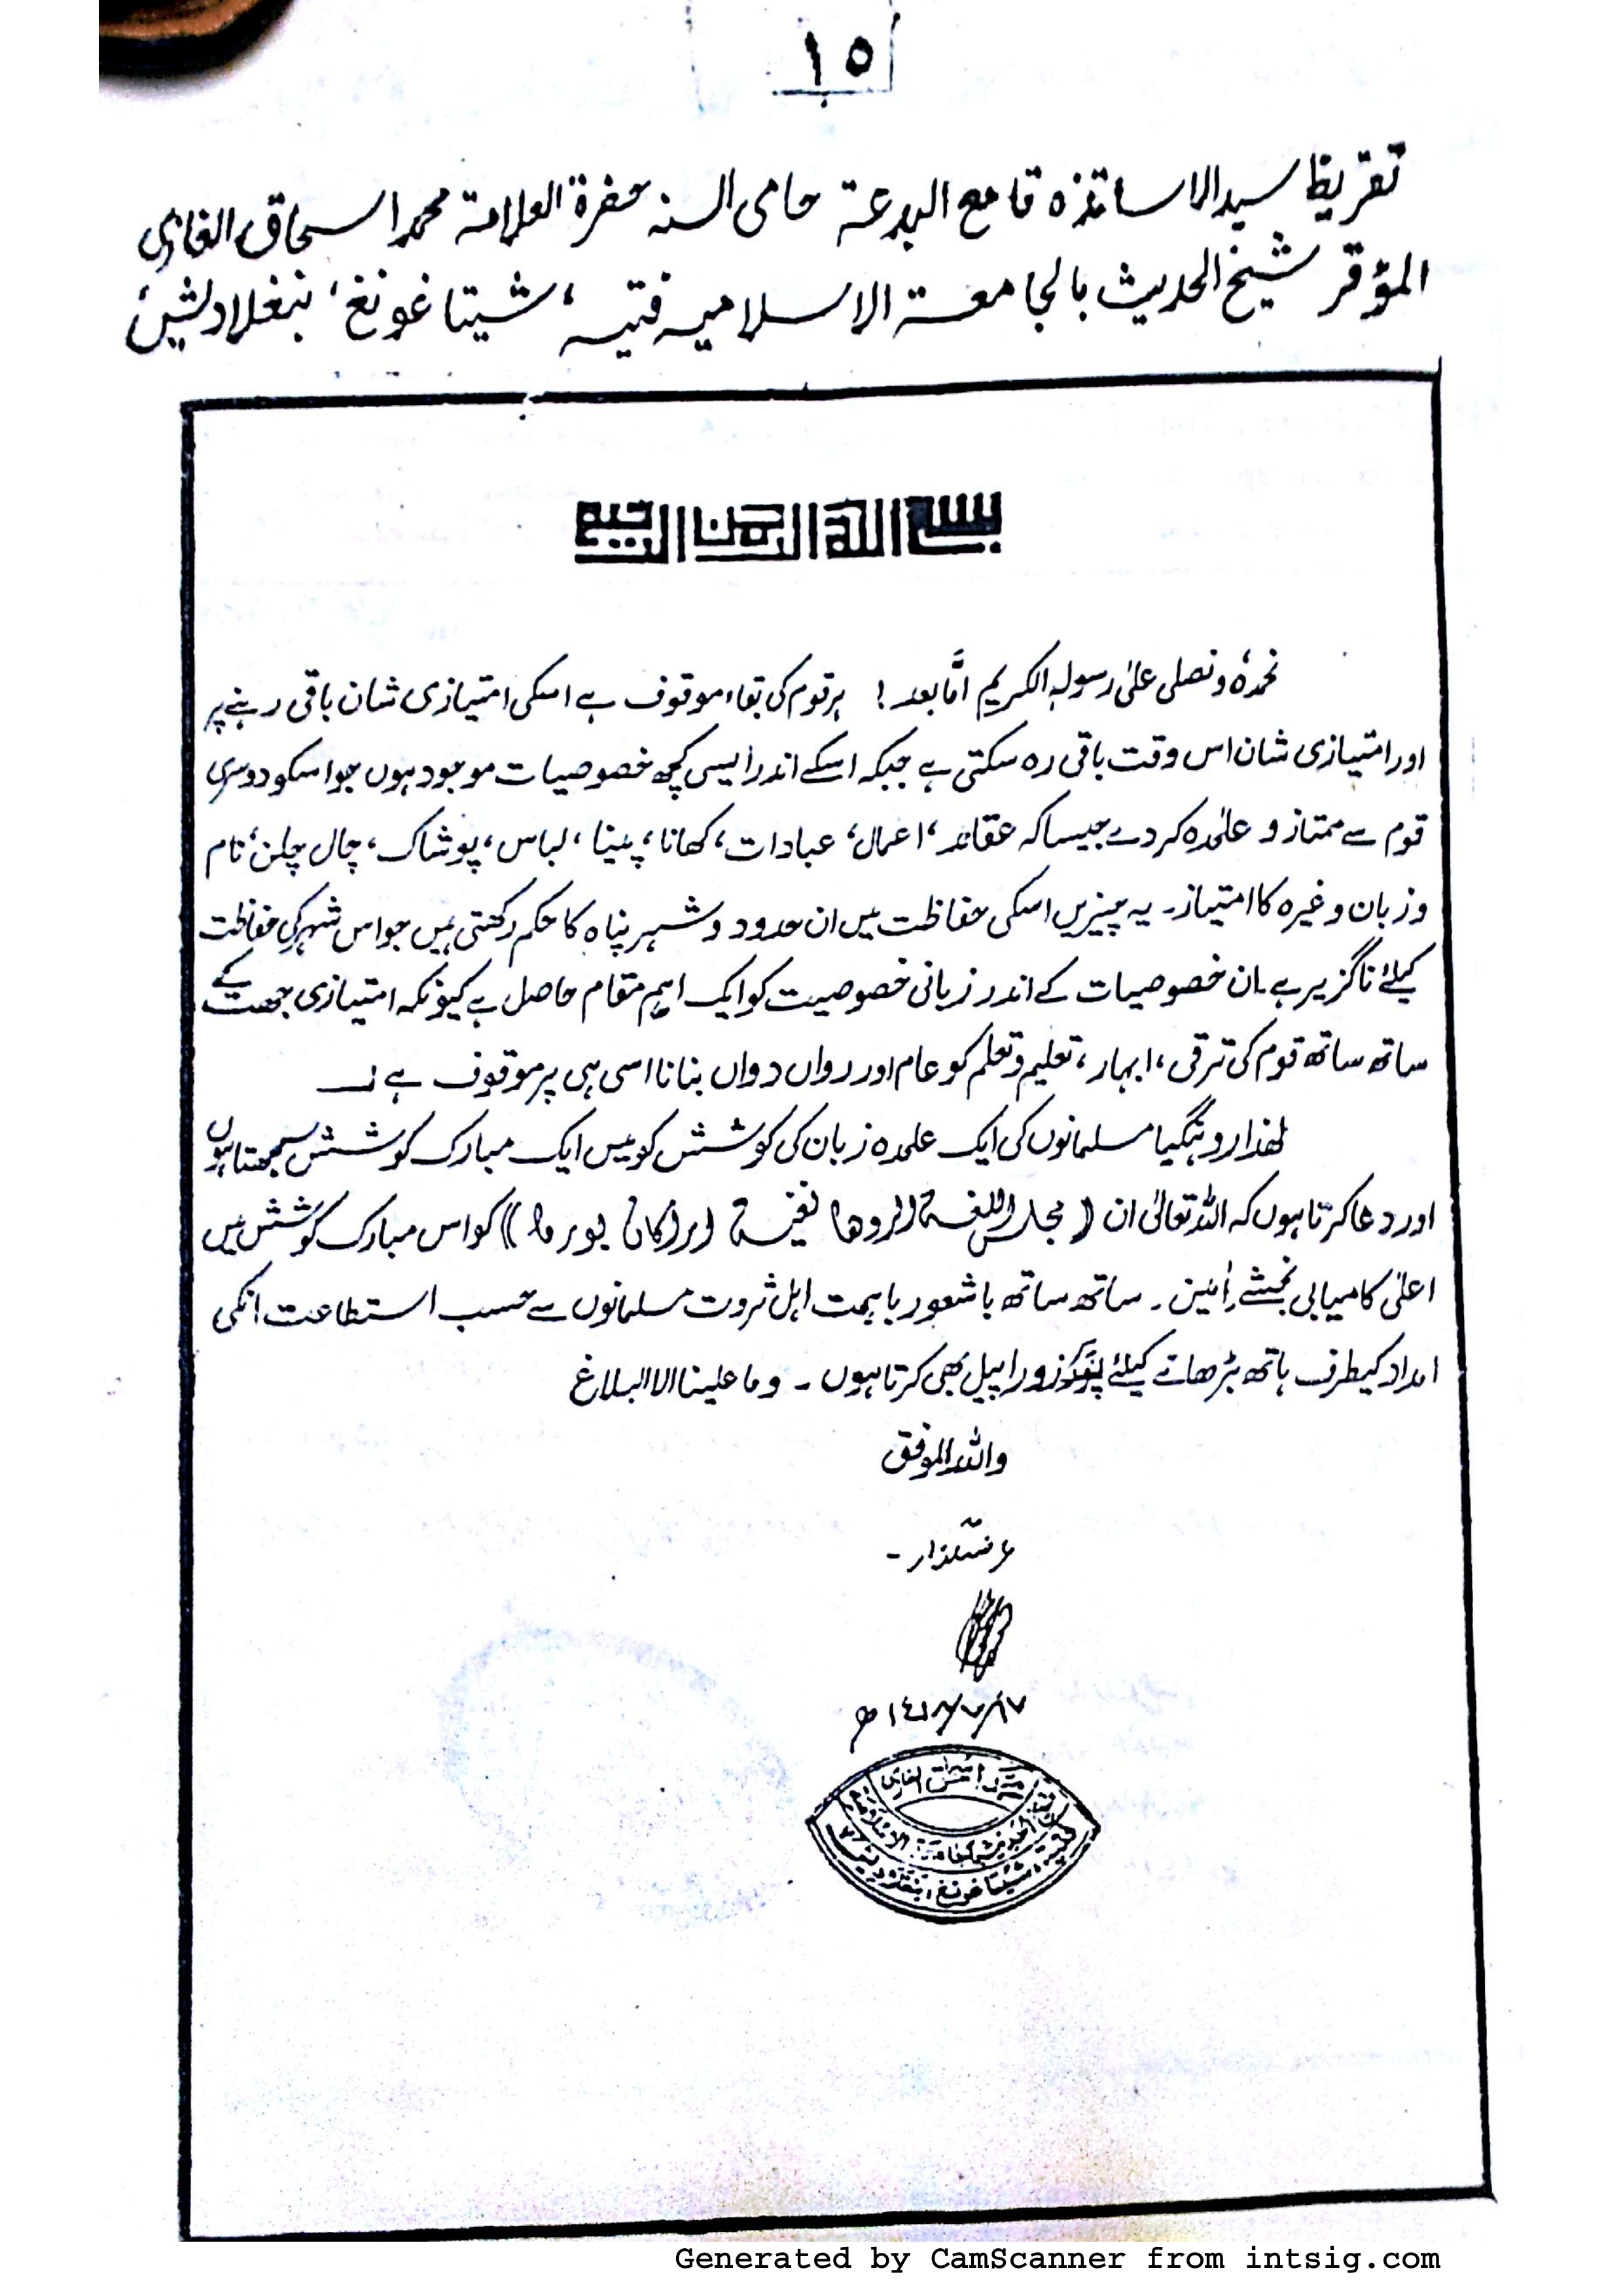 ١٥
تقریظ سید الاساتذہ قامع البدعة حامی السنہ حضرة العلامة محمد اسحاق الغازی
المؤقر شیخ الحدیث بالجامعة الاسلامیہ فتیہ، شیتاغونغ، بنغلادیش
بسم الله الرحمن الرحيم
نحمدہٗ ونصلی علیٰ رسولہ الکریم امّا بعد! ہر قوم کی بقاء موقوف ہے اسکی امتیازی شان باقی رہنے پر
اور امتیازی شان اس وقت باقی رہ سکتی ہے جبکہ اسکے اندر ایسی کچھ خصوصیات موجود ہوں جو اسکو دوسری
قوم سے ممتاز و علٰحدہ کردے جیسا کہ عقائد، اعمال، عبادات، کھانا، پینا، لباس، پوشاک، چال چلن، نام
و زبان وغیرہ کا امتیاز۔ یہ چیزیں اسکی حفاظت میں ان حدود و شہر پناہ کا حکم رکھتی ہیں جو اس شہر کی حفاظت
کیلئے ناگزیر ہے۔ ان خصوصیات کے اندر زبانی خصوصیت کو ایک اہم مقام حاصل ہے کیونکہ امتیازی جہت کے
ساتھ ساتھ قوم کی ترقی، ابہار، تعلیم وتعلم کو عام اور رواں دواں بنانا اسی ہی پر موقوف ہے۔
لھٰذا روہنگیا مسلمانوں کی ایک علٰحدہ زبان کی کوشش کو میں ایک مبارک کوشش سمجھتا ہوں
اور دعا کرتا ہوں کہ اللہ تعالیٰ ان (مجلس اللغة الروهانغية اراكان بورما) کو اس مبارک کوشش میں
اعلیٰ کامیابی بخشے اٰمین۔ ساتھ ساتھ باشعور باہمت اہل ثروت مسلمانوں سے حسب استطاعت انکی
امداد کیطرف ہاتھ بڑھانے کیلئے زور اپیل بھی کرتا ہوں۔ وما علینا الا البلاغ
واللہ الموفق
عرضگذار۔
محمد اسحق الغازی
شیخ الحدیث بالجامعة الاسلامیة
فتیة، شیتاغونغ، بنغلادیش
Generated by CamScanner from intsig.com